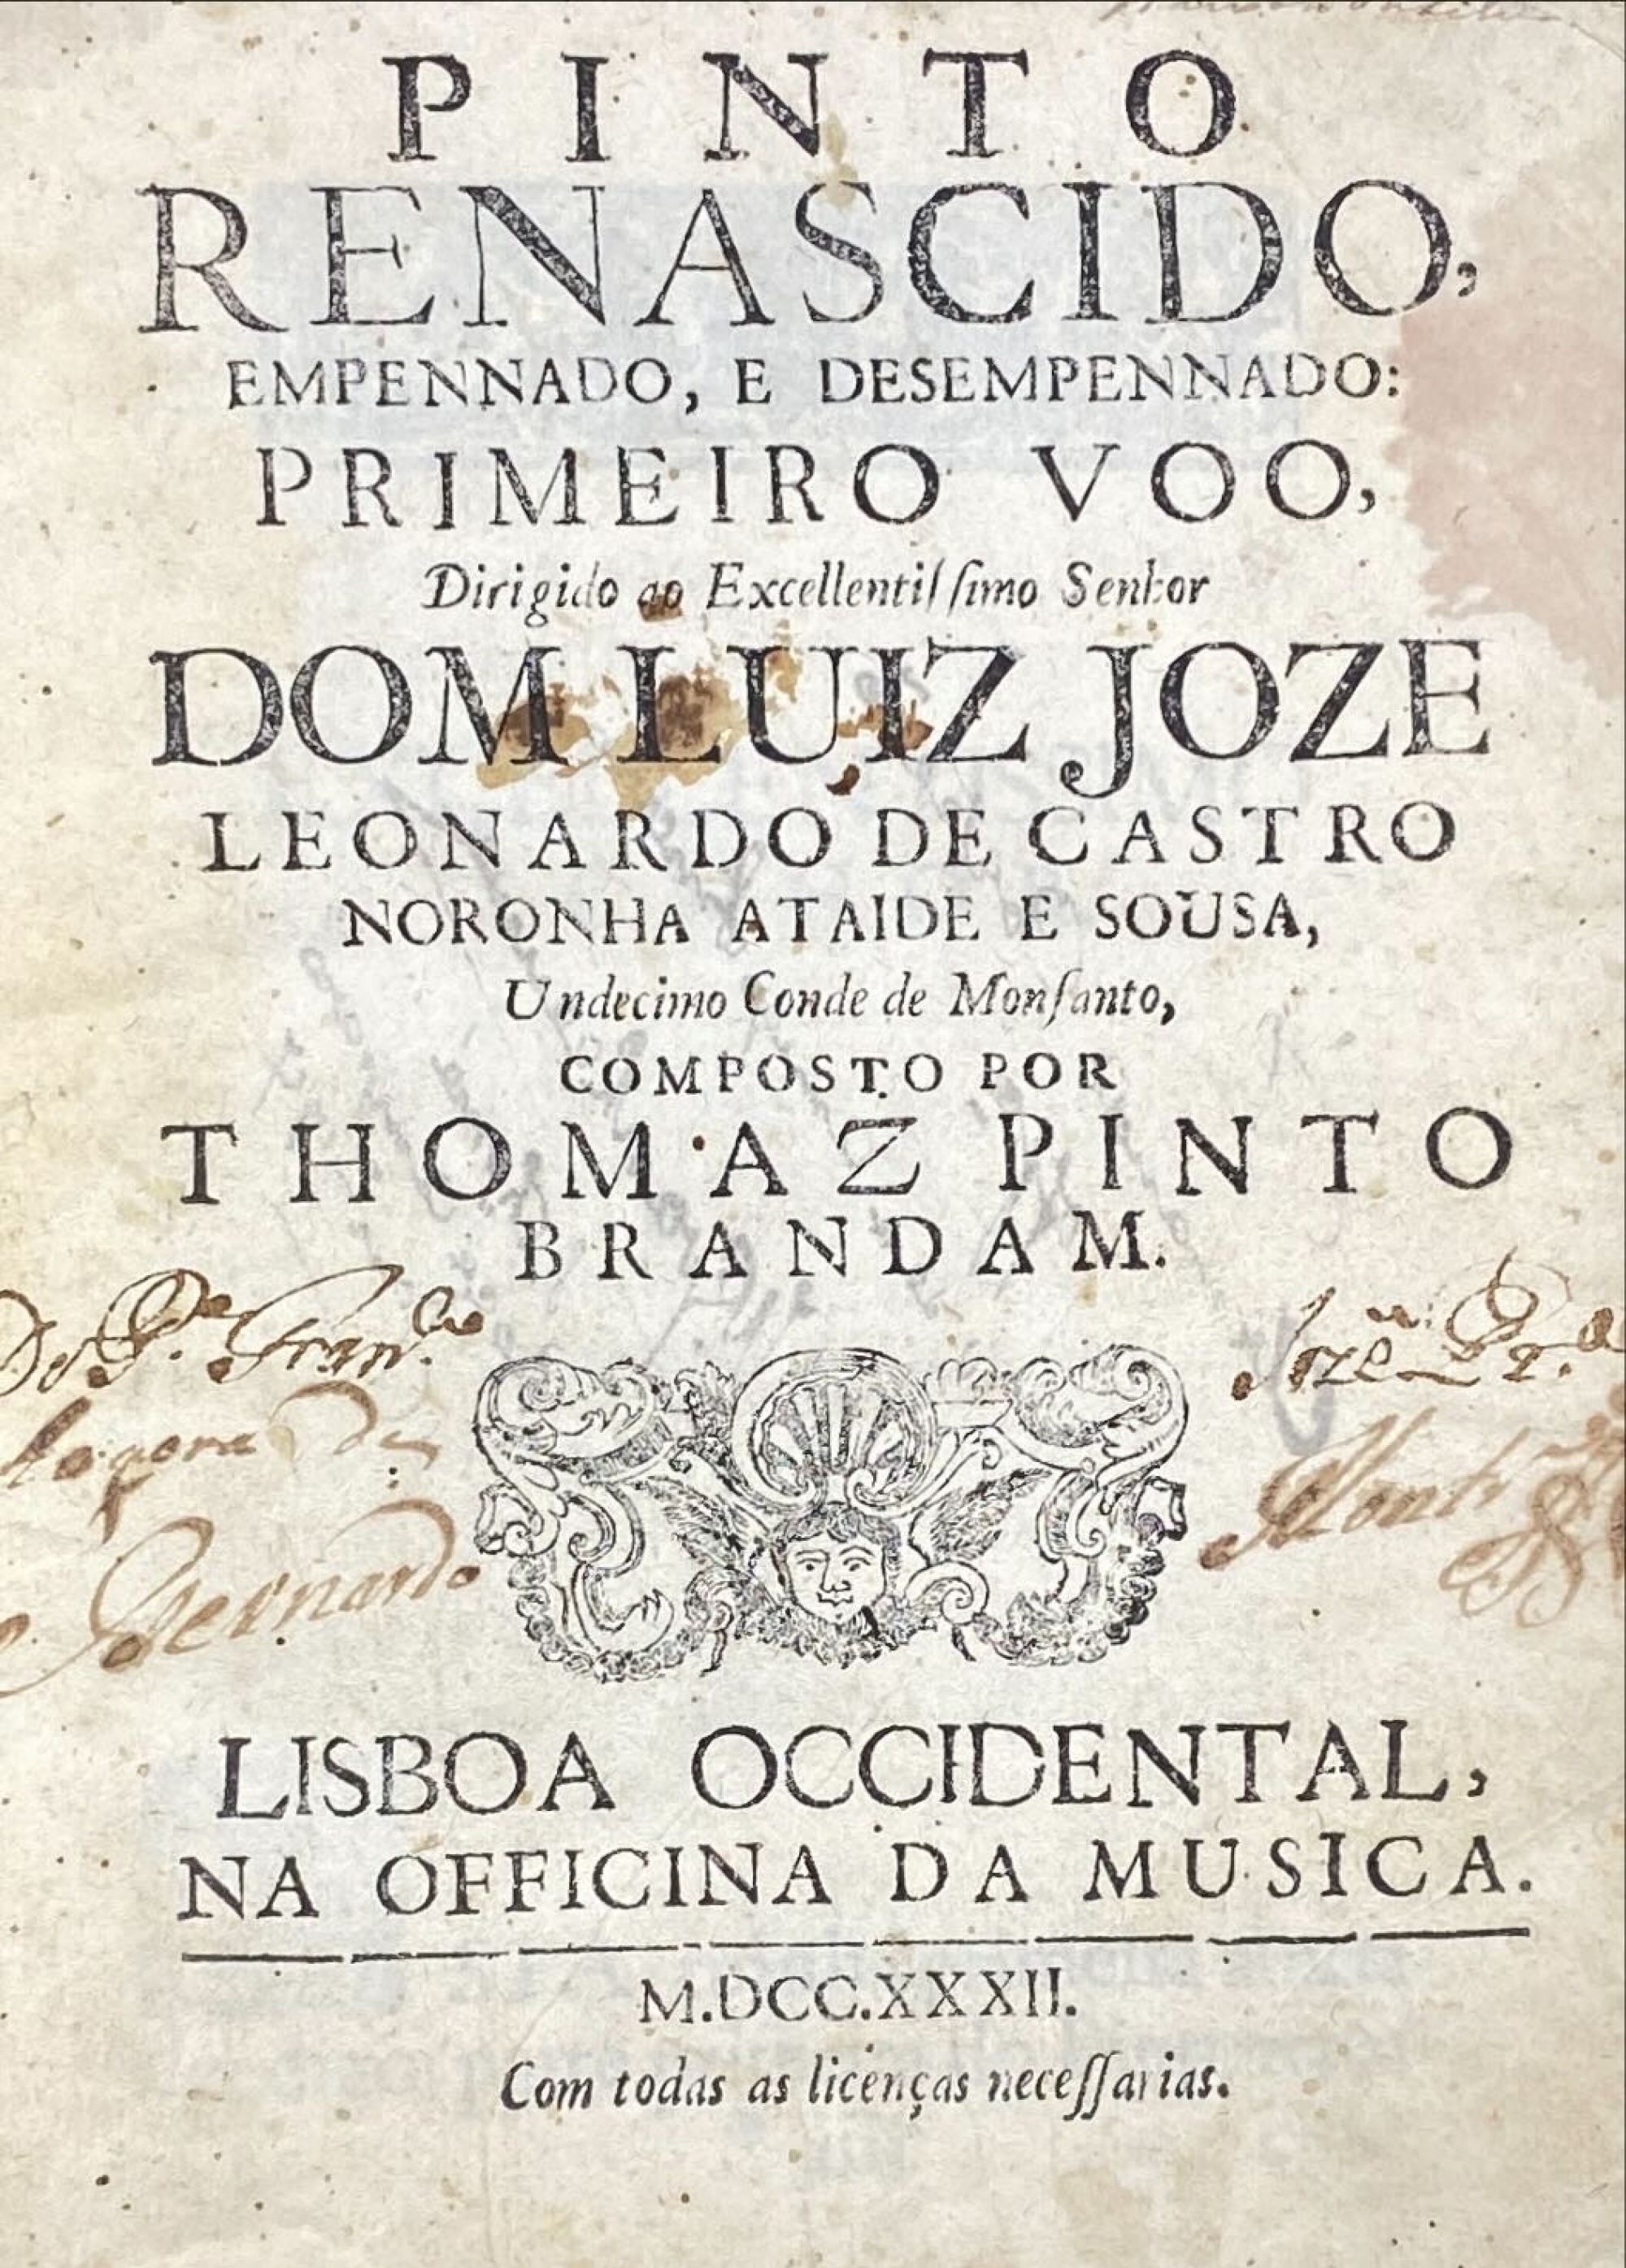 PINTO
RENASCIDO,
EMPENNADO, E DESEMPENNADO:
PRIMEIRO VOO,
Dirigido ao Excellentisſimo Senhor
DOM LUIZ JOZE
LEONARDO DE CASTRO
NORONHA ATAIDE E SOUSA,
Undecimo Conde de Monſanto,
COMPOSTO POR
THOMAZ PINTO
BRANDAM.
Do P.e Fran.co
agora de
Bernardo
LISBOA OCCIDENTAL,
NA OFFICINA DA MUSICA.
M.DCC.XXXII.
Com todas as licenças neceſſarias.